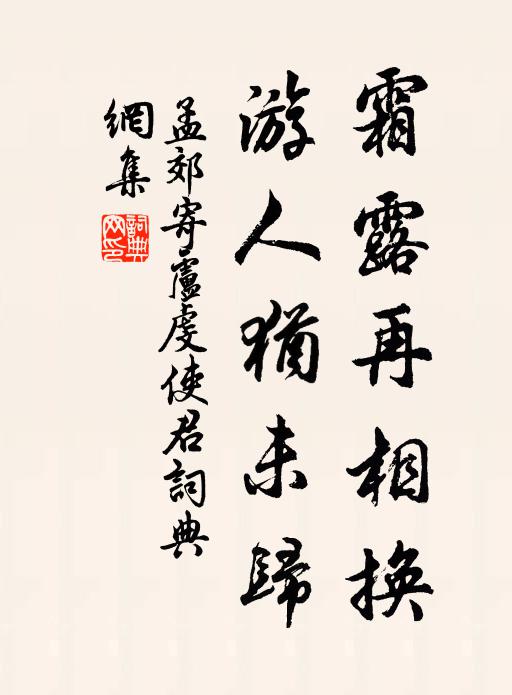 霜露再相換
游人猶未歸
孟郊寄盧虔使君詞典
網集
詞典網印